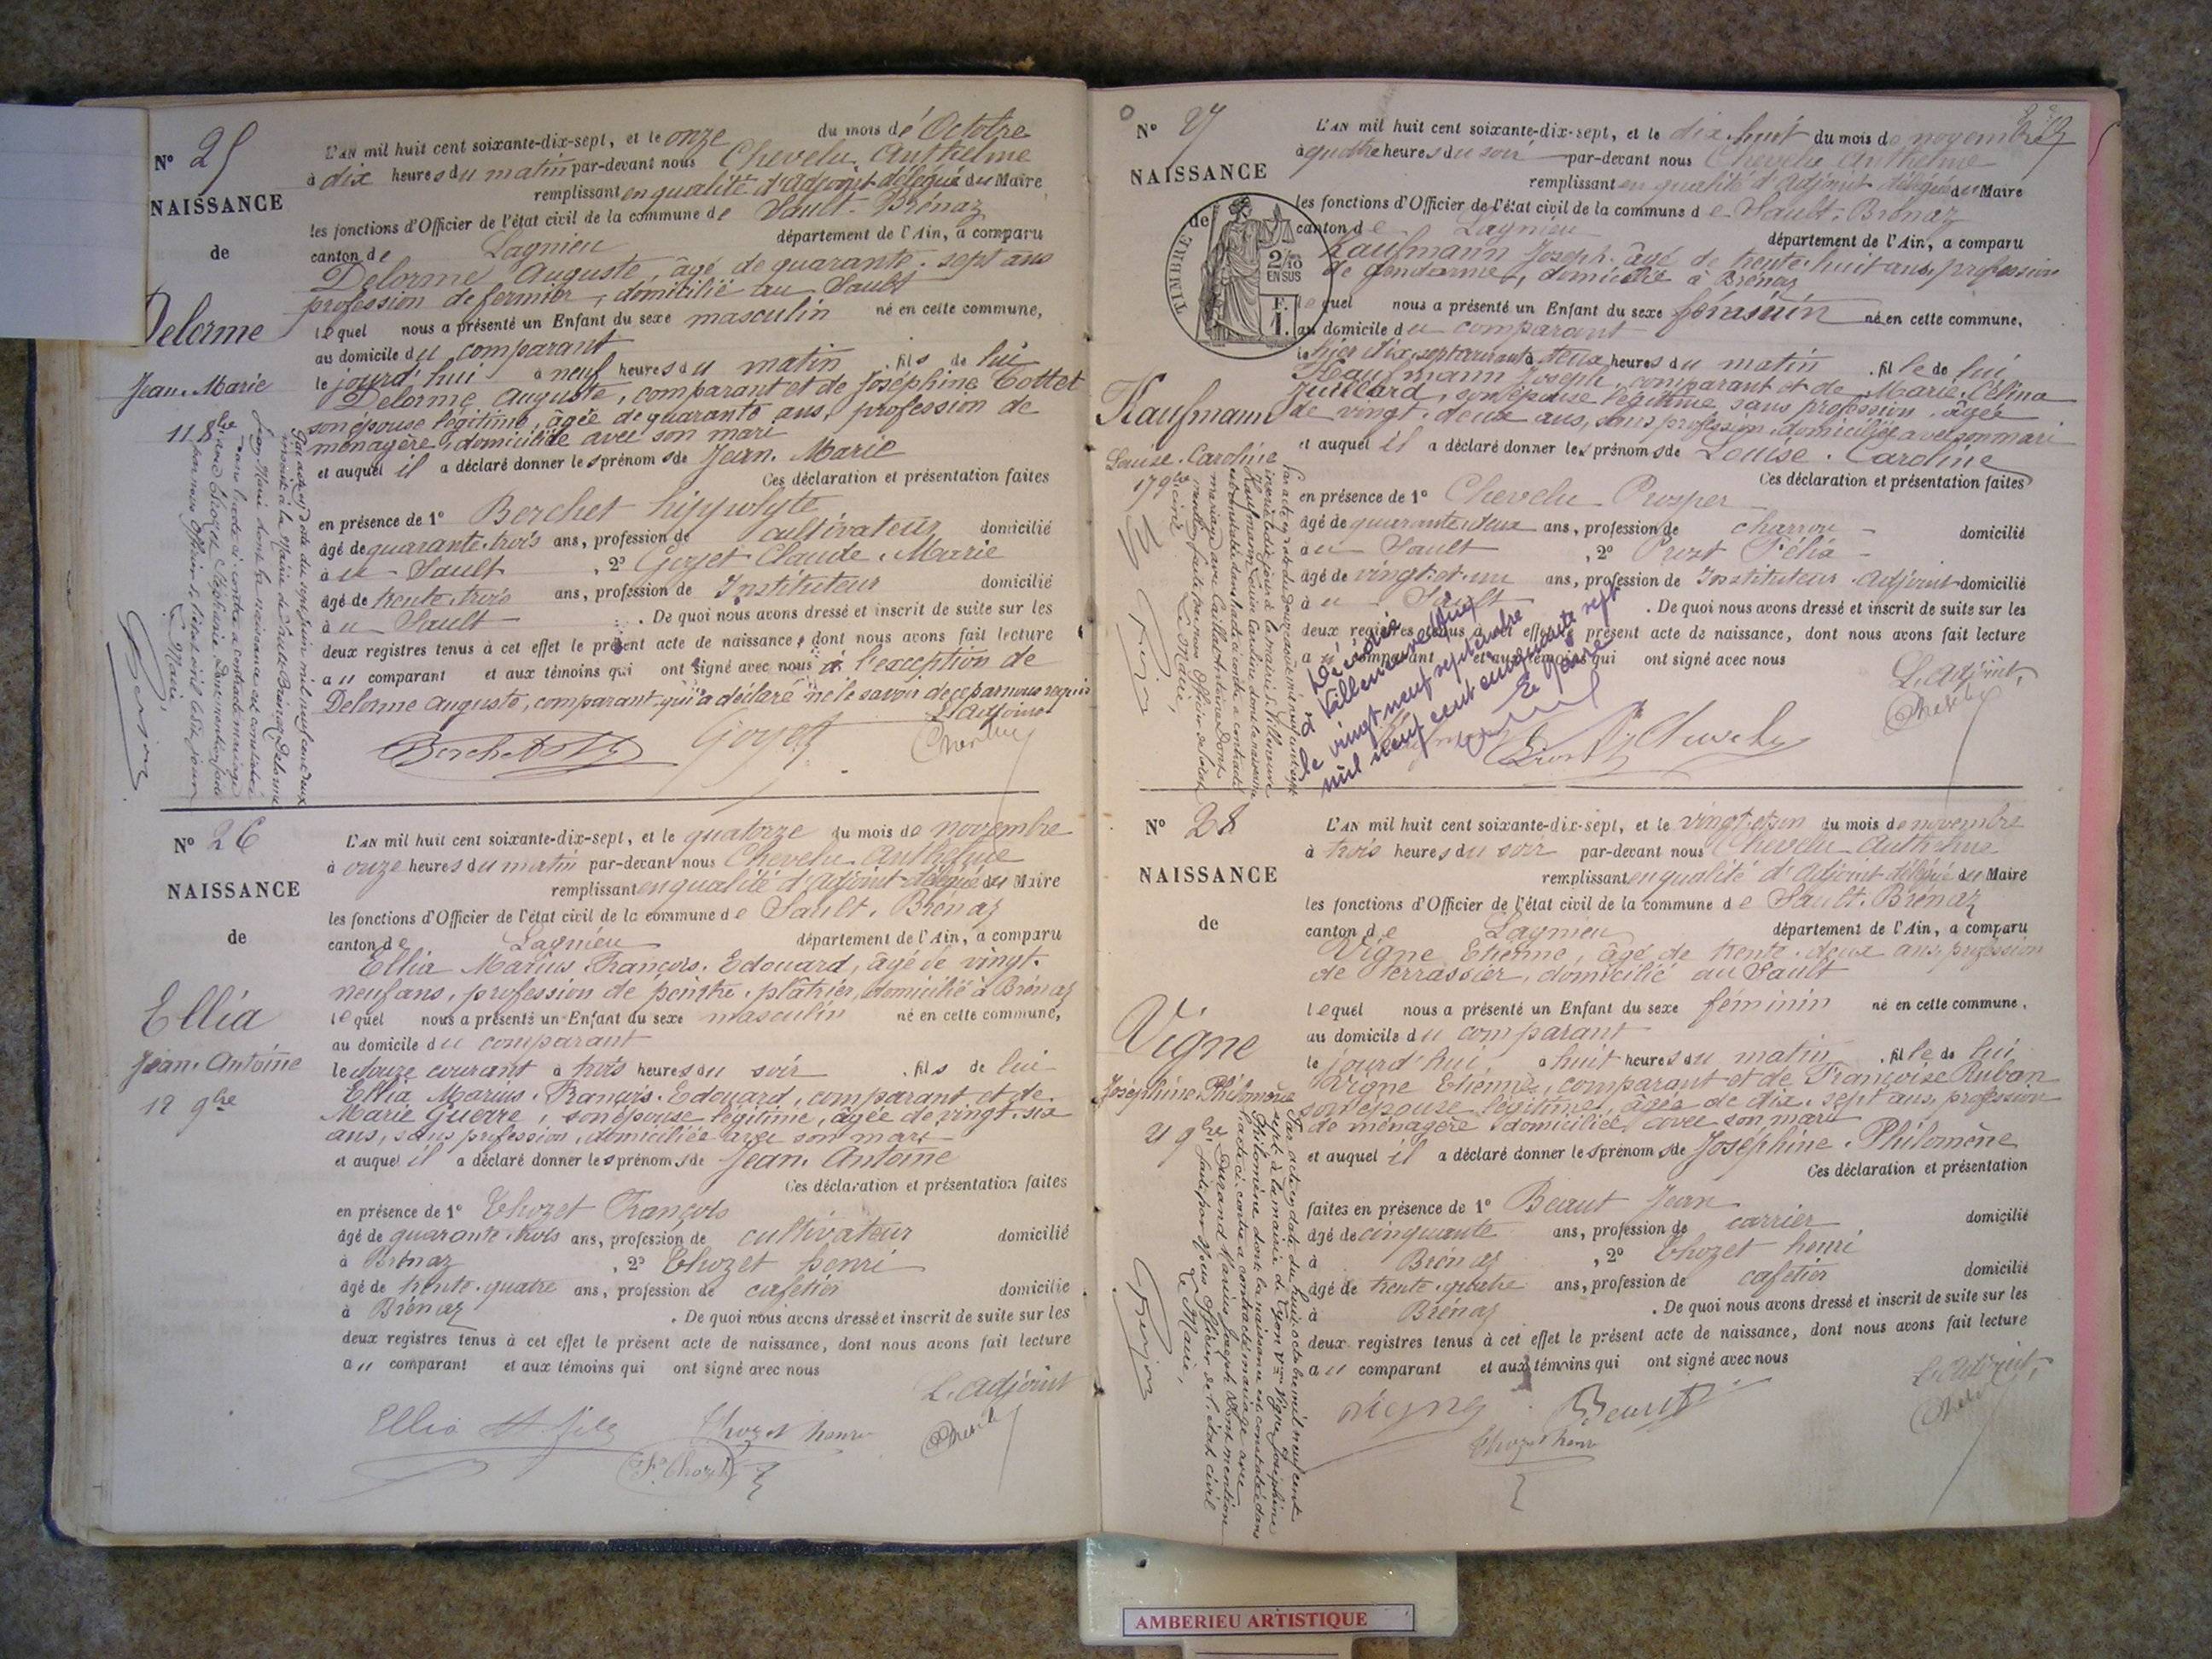 N° 25
NAISSANCE
de
Delorme
Jean. Marie
11 8bre
L'AN mil huit cent soixante-dix-sept, et le onze du mois de Octobre
à dix heures du matin par-devant nous Chevelu Anthelme
remplissant en qualité d'Adjoint délégué du Maire
les fonctions d'Officier de l'état civil de la commune de Sault-Brénaz
canton de Lagnieu département de l'Ain, a comparu
Delorme Auguste, âgé de quarante-sept ans
profession de fermier, domicilié au Sault
lequel nous a présenté un Enfant du sexe masculin né en cette commune,
au domicile du comparant
le jourd'hui à neuf heures du matin, fils de lui
Delorme Auguste, comparant et de Joséphine Cottet
son épouse légitime, âgée de quarante ans, profession de
ménagère, domiciliée avec son mari
et auquel il a déclaré donner les prénoms de Jean. Marie
Ces déclaration et présentation faites
en présence de 1° Berchet hippolyte
âgé de quarante-trois ans, profession de cultivateur domicilié
à u Sault, 2° Goyet Claude. Marie
âgé de trente-trois ans, profession de Instituteur domicilié
à u Sault. De quoi nous avons dressé et inscrit de suite sur les
deux registres tenus à cet effet le présent acte de naissance, dont nous avons fait lecture
au comparant et aux témoins qui ont signé avec nous à l'exception de
Delorme Auguste, comparant qui a déclaré ne le savoir de ce par nous requis
L'Adjoint
N° 26
NAISSANCE
de
Ellia
Jean. Antoine
12 9bre
L'AN mil huit cent soixante-dix-sept, et le quatorze du mois de novembre
à onze heures du matin par-devant nous Chevelu Anthelme
remplissant en qualité d'Adjoint délégué du Maire
les fonctions d'Officier de l'état civil de la commune de Sault. Brénaz
canton de Lagnieu département de l'Ain, a comparu
Ellia Marius. François. Edouard, âgé de vingt-
neuf ans, profession de peintre. plâtrier, domicilié à Brénaz
lequel nous a présenté un Enfant du sexe masculin né en cette commune,
au domicile du comparant
le douze courant à trois heures du soir, fils de lui
Ellia Marius. François. Edouard, comparant et de
Marie Guerre, son épouse légitime, âgée de vingt-six
ans, sans profession, domiciliée avec son mari
et auquel il a déclaré donner les prénoms de Jean. Antoine
Ces déclaration et présentation faites
en présence de 1° Thozet François
âgé de quarante-trois ans, profession de cultivateur domicilié
à Brénaz, 2° Thozet henri
âgé de trente-quatre ans, profession de cafetier domicilié
à Brénaz. De quoi nous avons dressé et inscrit de suite sur les
deux registres tenus à cet effet le présent acte de naissance, dont nous avons fait lecture
au comparant et aux témoins qui ont signé avec nous
L'Adjoint
Thozet henri
N° 27
NAISSANCE
de
TIMBRE
2/10
EN SUS
F.
1.
Kaufmann
Louise. Caroline
17 9bre
L'AN mil huit cent soixante-dix-sept, et le dix-huit du mois de novembre
à quatre heures du soir par-devant nous Chevelu Anthelme
remplissant en qualité d'Adjoint délégué du Maire
les fonctions d'Officier de l'état civil de la commune de Sault. Brénaz
canton de Lagnieu département de l'Ain, a comparu
Kaufmann Joseph. âgé de trente-huit ans, profession
de gendarme, domicilié à Brénaz
lequel nous a présenté un Enfant du sexe féminin né en cette commune,
au domicile du comparant
le hier dix-sept courant à deux heures du matin, fille de lui
Kaufmann Joseph, comparant et de Marie. Célina
Juillard, son épouse légitime sans profession âgée
de vingt-deux ans, sans profession, domiciliée avec son mari
et auquel il a déclaré donner les prénoms de Louise. Caroline
Ces déclaration et présentation faites
en présence de 1° Chevelu Prosper
âgé de quarante-deux ans, profession de charron domicilié
à u Sault, 2° Félix
âgé de vingt-et-un ans, profession de Instituteur Adjoint domicilié
à u Sault. De quoi nous avons dressé et inscrit de suite sur les
deux registres tenus à cet effet le présent acte de naissance, dont nous avons fait lecture
au comparant et aux témoins qui ont signé avec nous
L'Adjoint,
Décédée
à Villeneuve
le vingt neuf septembre
mil neuf cent cinquante sept
Le Maire
N° 28
NAISSANCE
de
Vigne
Joséphine. Philomène
21 9bre
L'AN mil huit cent soixante-dix-sept, et le vingt-et-un du mois de novembre
à trois heures du soir par-devant nous Chevelu Anthelme
remplissant en qualité d'Adjoint délégué du Maire
les fonctions d'Officier de l'état civil de la commune de Sault. Brénaz
canton de Lagnieu département de l'Ain, a comparu
Vigne Etienne, âgé de trente-deux ans, profession
de Terrassier, domicilié au Sault
lequel nous a présenté un Enfant du sexe féminin né en cette commune,
au domicile du comparant
le jourd'hui, à huit heures du matin, fille de lui
Vigne Etienne, comparant et de Françoise Ruban
son épouse légitime, âgée de dix-sept ans, profession
de ménagère domiciliée avec son mari
et auquel il a déclaré donner les prénoms de Joséphine. Philomène
Ces déclaration et présentation
faites en présence de 1° Beaut Jean
âgé de cinquante ans, profession de carrier domicilié
à Brénaz, 2° Thozet henri
âgé de trente-quatre ans, profession de cafetier domicilié
à Brénaz. De quoi nous avons dressé et inscrit de suite sur les
deux registres tenus à cet effet le présent acte de naissance, dont nous avons fait lecture
au comparant et aux témoins qui ont signé avec nous
L'Adjoint,
Thozet henri
AMBERIEU ARTISTIQUE